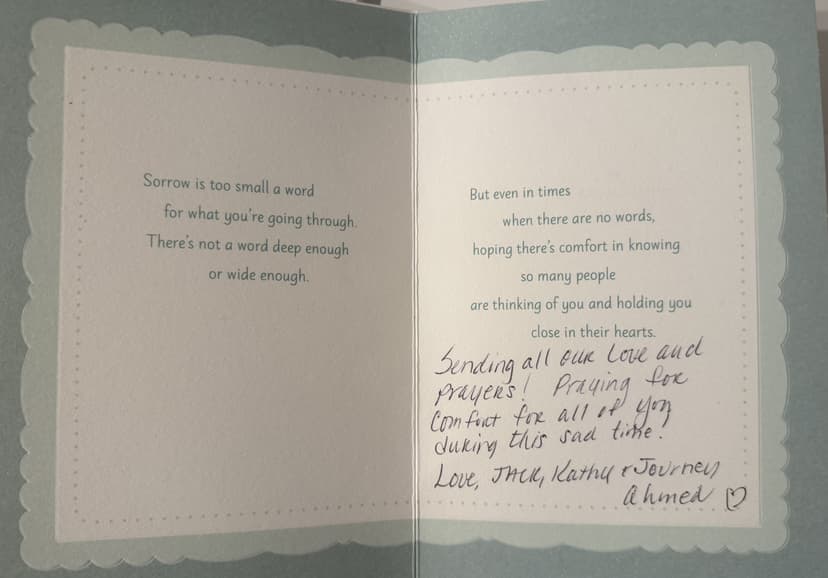 Sorrow is too small a word
for what you're going through.
There's not a word deep enough
or wide enough.
But even in times
when there are no words,
hoping there's comfort in knowing
so many people
are thinking of you and holding you
close in their hearts.
Sending all our Love and
Prayers! Praying for
Comfort for all of you
during this sad time.
Love, JACK, Kathy & Journey
Ahmed ♡